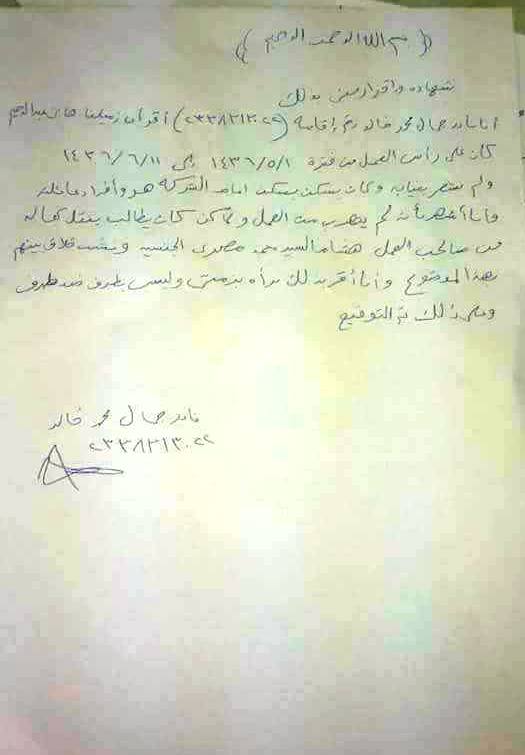 ( بسم الله الرحمن الرحيم )
شهاده واقرار مني بذلك
أنا نادر جمال محمد خالد رقم إقامة (٢٣٣٨٢١٣٠٢٢) أقر أن زميلنا هاني عبدالرحيم
كان على رأس العمل من فترة ١٤٣٦/٥/١ إلى ١٤٣٦/٦/١١
ولم يتغيب وكان يسكن بسكن امام الشركه هو وأفراد عائلته
وأنا أشهد أنه لم يتهرب من العمل ولاكن كان يطالب بنقل كفاله
من صاحب العمل هشام السيد محمد مصري الجنسيه ونشب خلاف بينهم
بهذا الموضوع وأنا أقر بذلك براه بذمتي وليس بطرف ضد طرف
وعلى ذلك تم التوقيع
نادر جمال محمد خالد
٢٣٣٨٢١٣٠٢٢